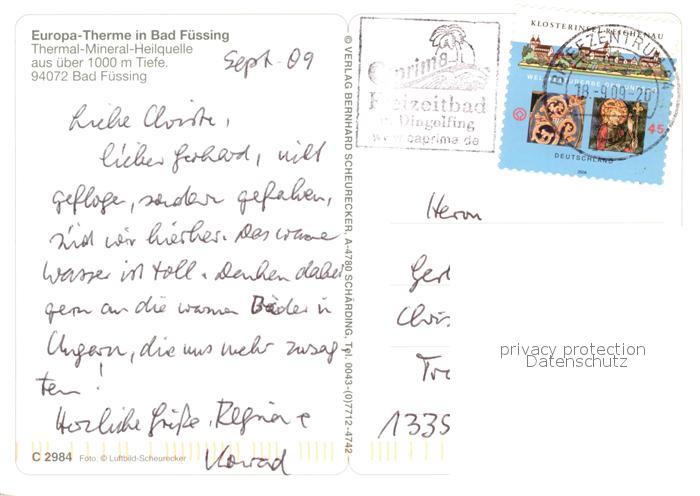 Europa-Therme in Bad Füssing
Thermal-Mineral-Heilquelle
aus über 1000 m Tiefe.
94072 Bad Füssing
Sept. 09
Liebe Christe,
lieber Gerhard, nicht
gefloge, sondern gefahren,
sind wir hierher. Das warme
Wasser ist toll. Denken dabei
gern an die warmen Bäder in
Ungarn, die uns mehr zusag-
ten!
Herzliche Grüße, Regina +
Konrad
C 2984 Foto: © Luftbild-Scheurecker
© VERLAG BERNHARD SCHEURECKER, A-4780 SCHÄRDING, Tel. 0043-(0)7712-4742
Caprima
Freizeitbad
Dingolfing
www.caprima.de
KLOSTERINSEL REICHENAU
BRIEFZENTRUM
18.-9.09-20
45
DEUTSCHLAND
Herrn
Ger
Chris
Tr
1335
privacy protection
Datenschutz